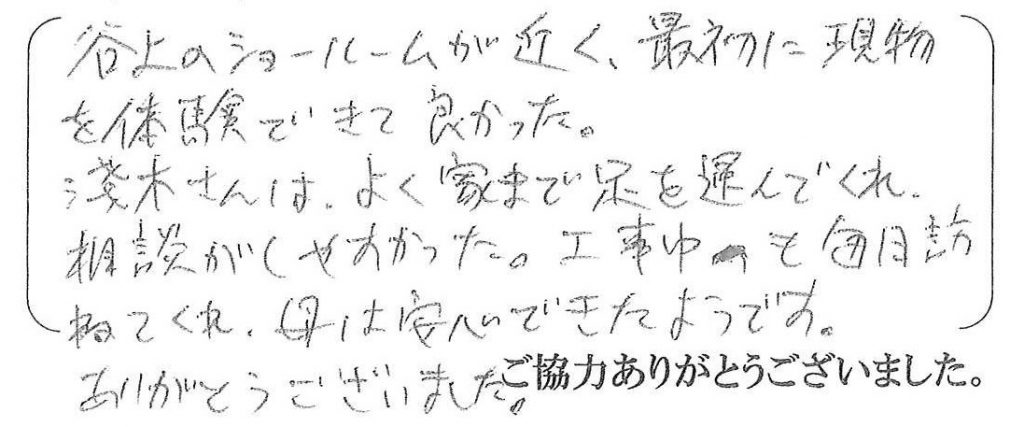 谷上のショールームが近く、最初に現物
を体験できて良かった。
浅木さんは、よく家まで足を運んでくれ、
相談がしやすかった。工事中も毎日訪
ねてくれ、母は安心できたようです。
ありがとうございました。
ご協力ありがとうございました。